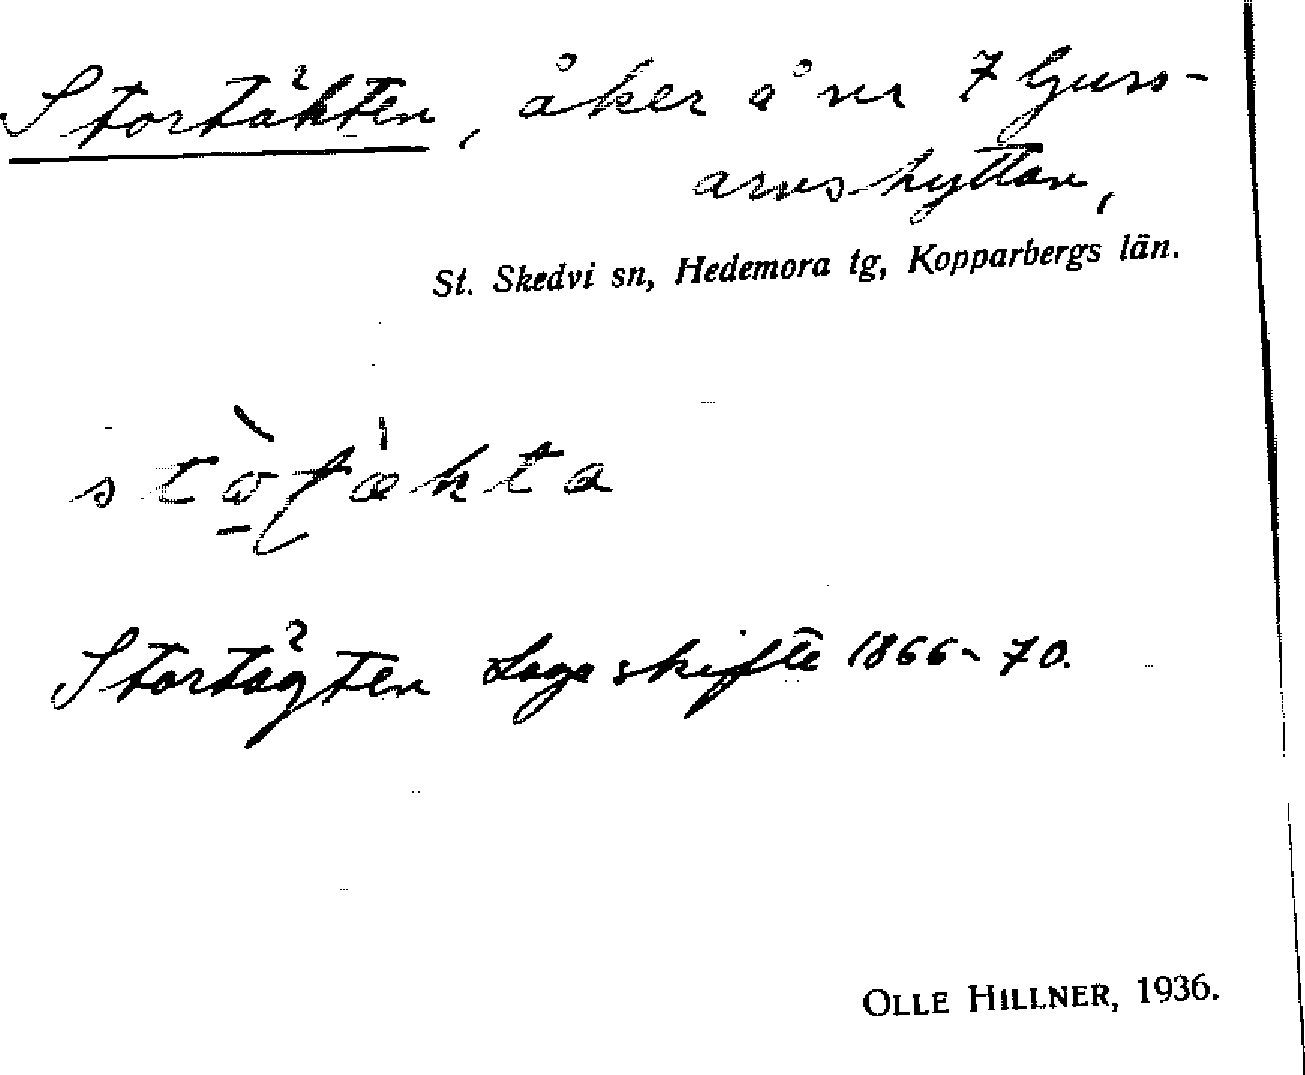 Stortäkten, åker å nr 7 Ljus-
arns hyttan,
St. Skedvi sn, Hedemora tg, Kopparbergs län.
stò̱ʈækta
Stortägten Laga skifte 1866-70.
OLLE HILLNER, 1936.